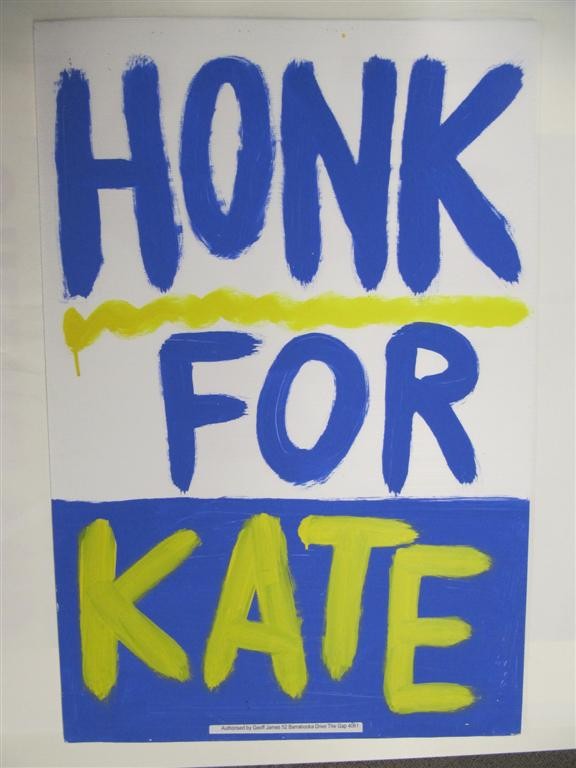 HONK
FOR
KATE
Authorised by Geoff James 52 Barrabooka Drive The Gap 4061